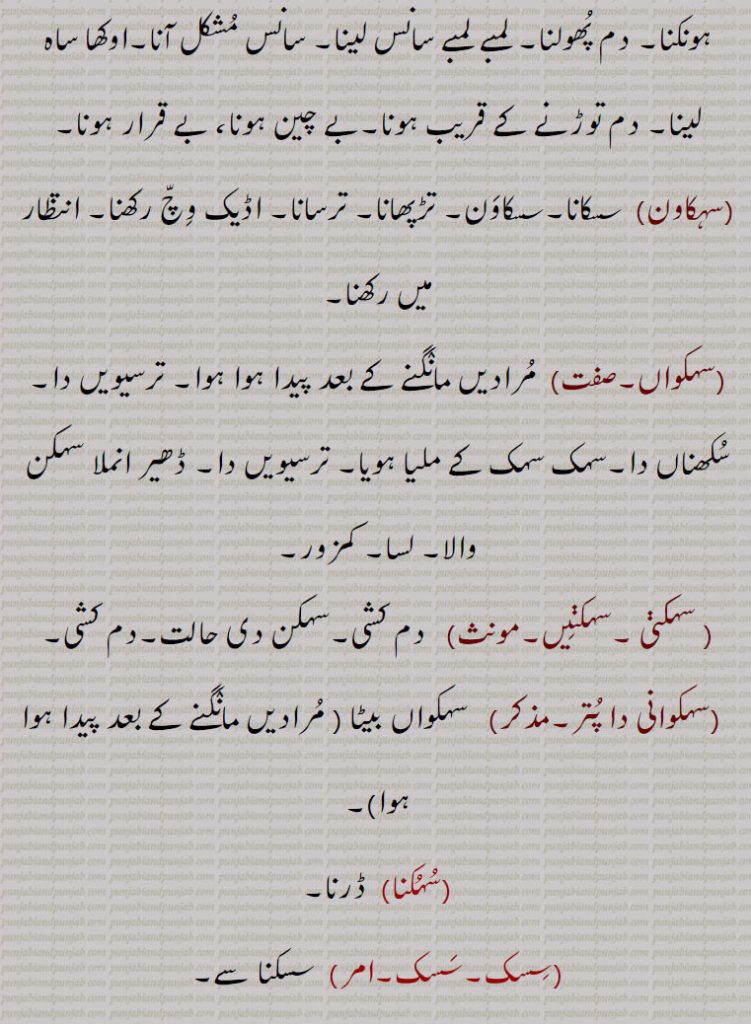 ہونکنا۔ دم پُھولنا۔ لمبے لمبے سانس لینا۔ سانس مُشکل آنا۔اوکھا ساہ
لینا۔ دم توڑنے کے قریب ہونا۔بے چین ہونا، بے قرار ہونا۔
(سہکاون) سسکانا۔سسکاوَن۔ تڑپھانا۔ ترسانا۔ اڈیک وِچّ رکھنا۔ انتظار
میں رکھنا۔
(سہکواں۔صفت) مُرادیں مانگنے کے بعد پیدا ہوا ہوا۔ ترسیویں دا۔
سُکھناں دا۔سہک سہک کے ملیا ہویا۔ ترسیویں دا۔ ڈھیر انملا سہکن
والا۔ لسا۔ کمزور۔
( سہکنی ۔سہکنِیں۔مونث) دم کشی۔سہکن دی حالت۔دم کشی۔
(سہکوانی دا پُتر۔مذکر) سہکواں بیٹا ( مُرادیں مانگنے کے بعد پیدا ہوا
ہوا)۔
(سُہُکنا) ڈرنا۔
(سِسک۔سَسک۔امر) سسکنا سے۔